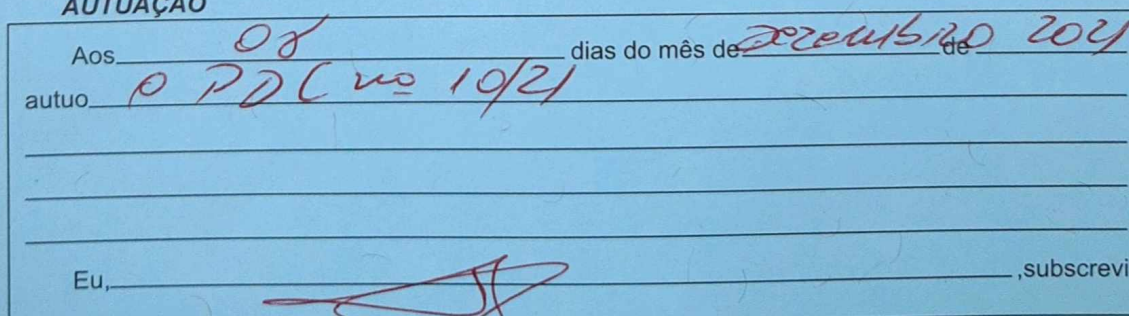 AUTUAÇÃO
Aos 08 dias do mês de dezembro de 2021
autuo o PDC nº 10/21
Eu, ,subscrevi